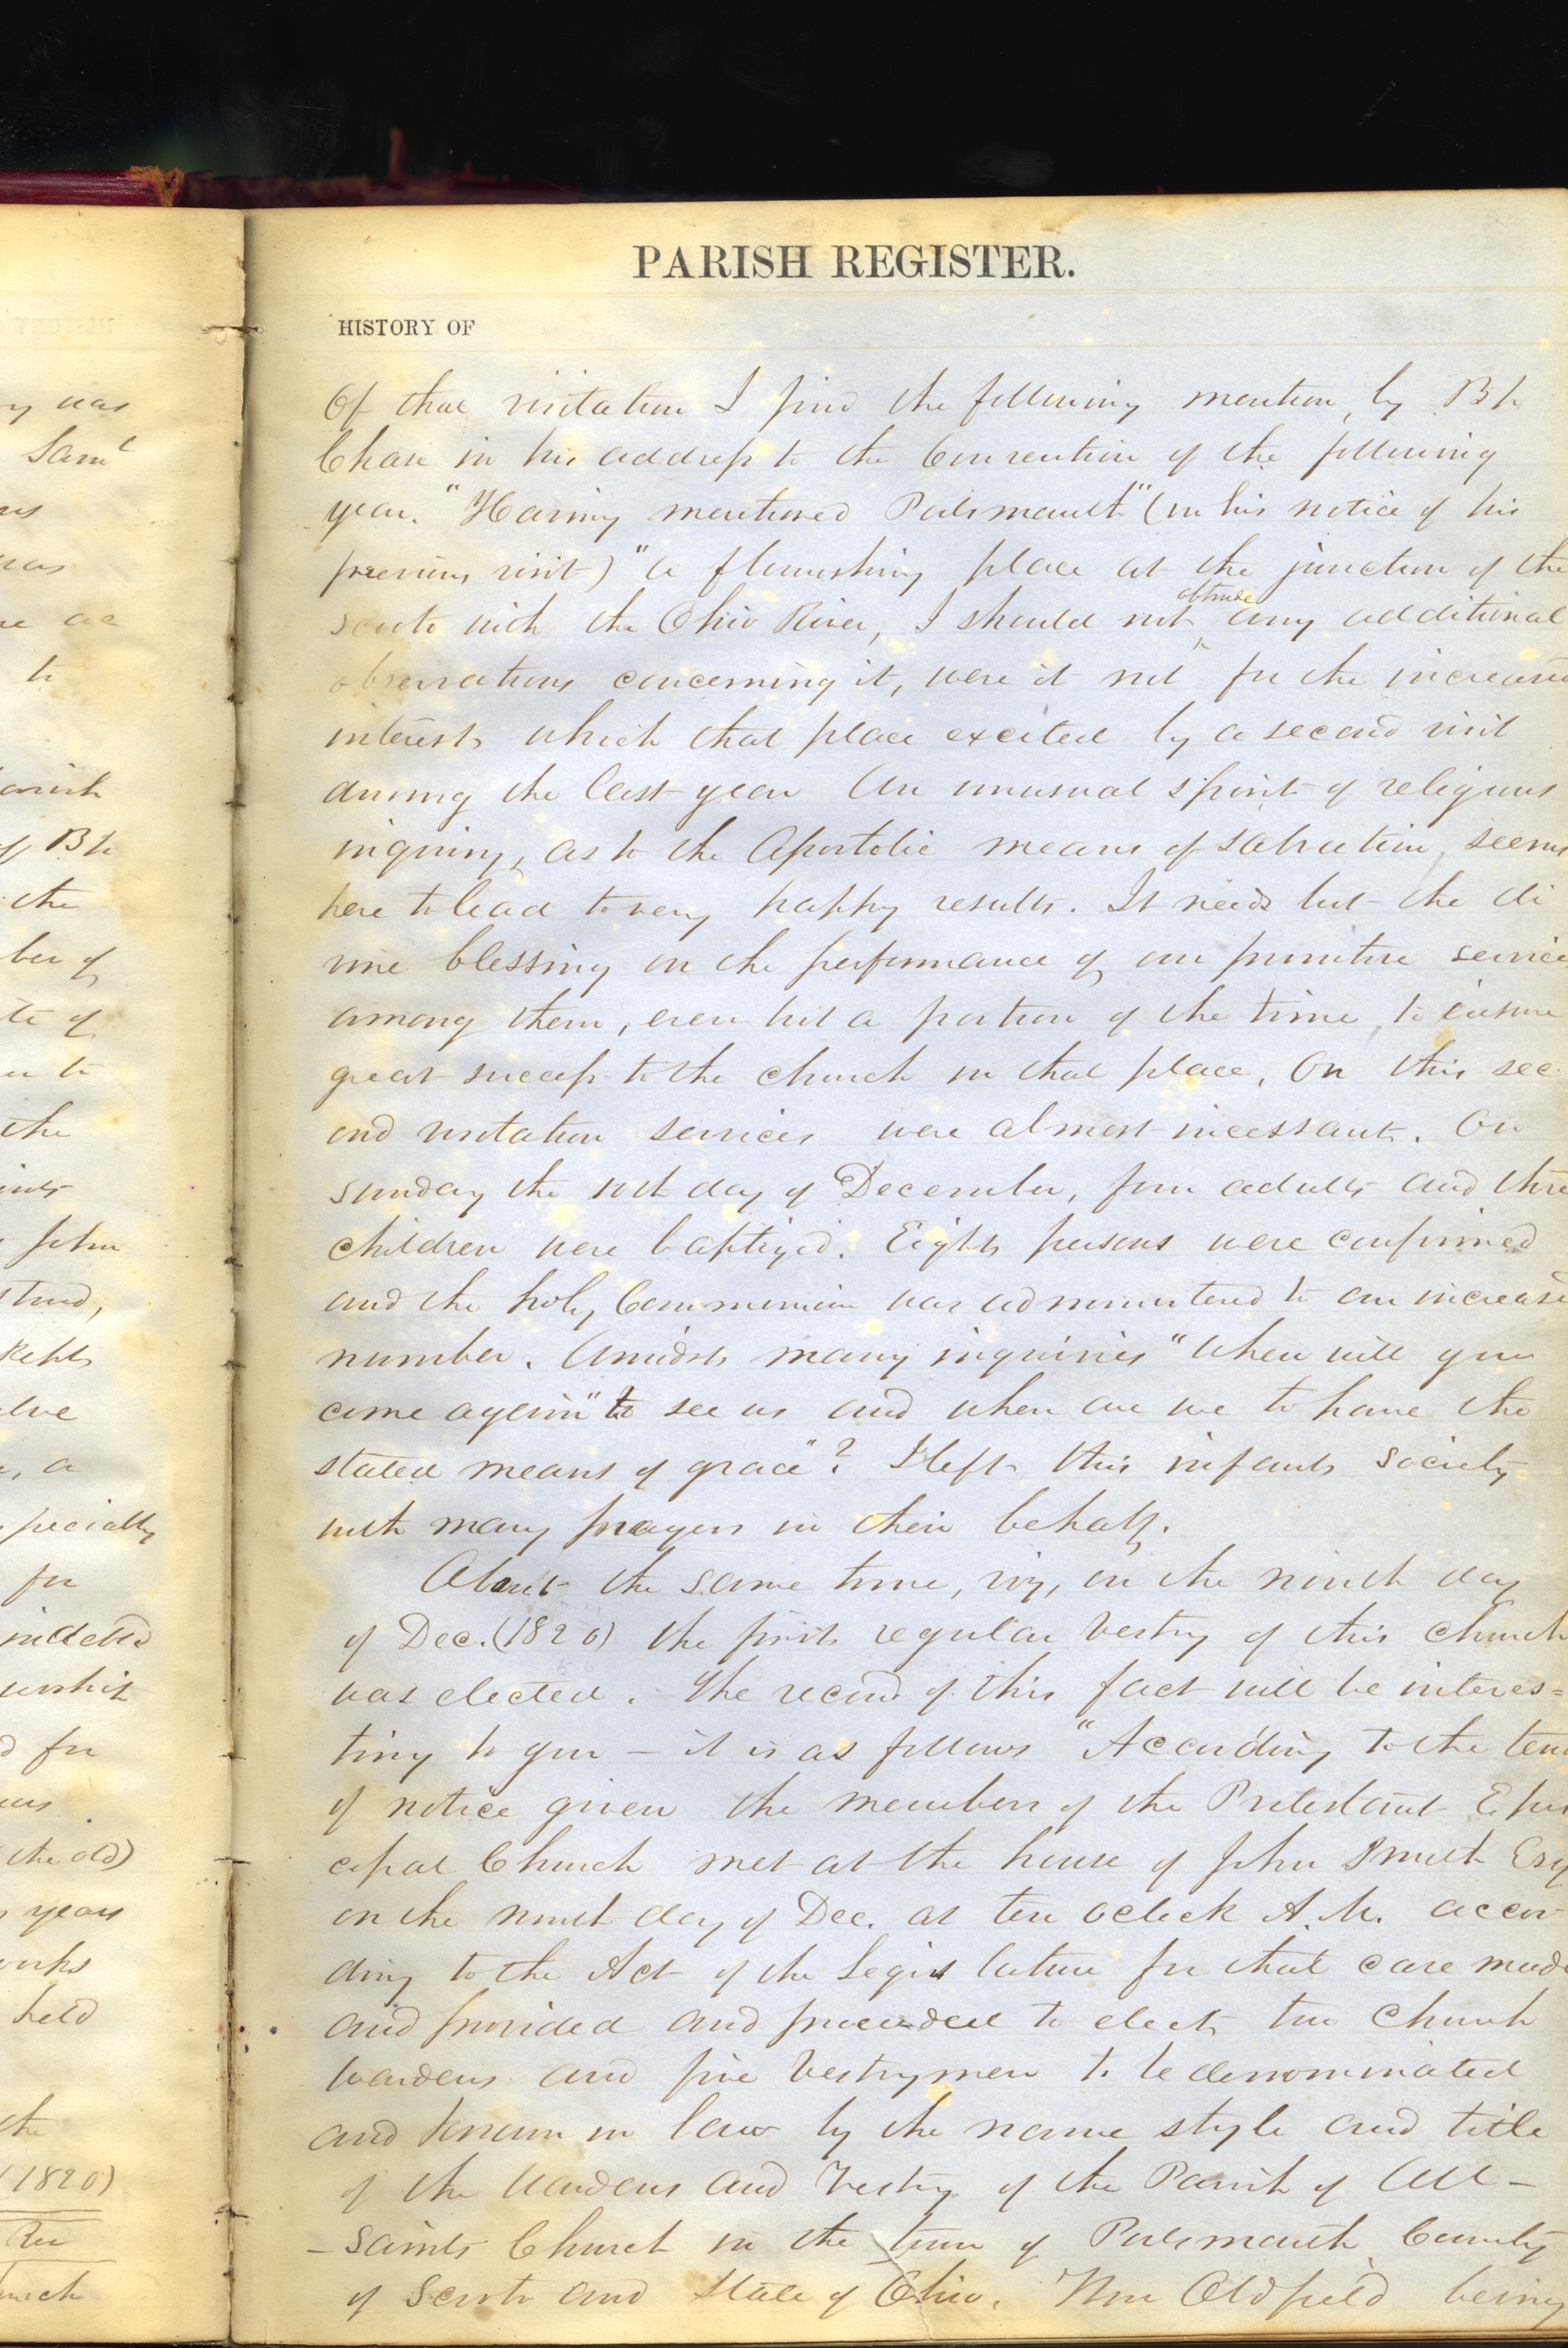 PARISH REGISTER.
HISTORY OF
Of that visitation I find the following mention, by Bp
Chase in his address to the Convention of the following
year. "Having mentioned Portsmouth" (in his notice of his
previous visit) "a flourishing place at the junction of the
Scioto with the Ohio River, I should not obtrude any additional
observations concerning it, were it not for the increased
interest which that place excited by a second visit
during the last year An unusual spirit of religious
inquiry, as to the Apostolic means of salvation, seems
here to lead to very happy results. It needs but the di
vine blessing on the performance of our primitive service
among them, even but a portion of the time, to ensure
great success to the church in that place, On this sec
ond visitation services were almost incessant. On
Sunday the 10th day of December, four adults and three
children were baptized. Eight persons were confirmed
and the holy Communion was administered to an increased
number. Amidst many inquiries "when will you
come again" to see us and when are we to have the
stated means of grace"? I left this infant society
with many prayers in their behalf.
About the same time, viz, on the ninth day
of Dec. (1820) the first regular Vestry of this church
was elected. The record of this fact will be interes=
ting to you – it is as follows "According to the
of notice given the members of the Protestant Epis
copal Church met at the house of John Smith Esq
on the ninth day of Dec. at ten oclock A.M. accor
ding to the Act of the Legislature for that case made
and provided and proceeded to elect two Church
Wardens and five Vestrymen to be denominated
and known in law by the name style and title
of the Wardens and Vestry of the Parish of All –
– Saints Church in the town of Portsmouth County
of Scioto and State of Ohio. Wm Oldfield being
y was
Saml
to
of Bp
the
ber of
the
John
a
specially
for
indebted
worship
for
the old)
years
held
the
(1820)